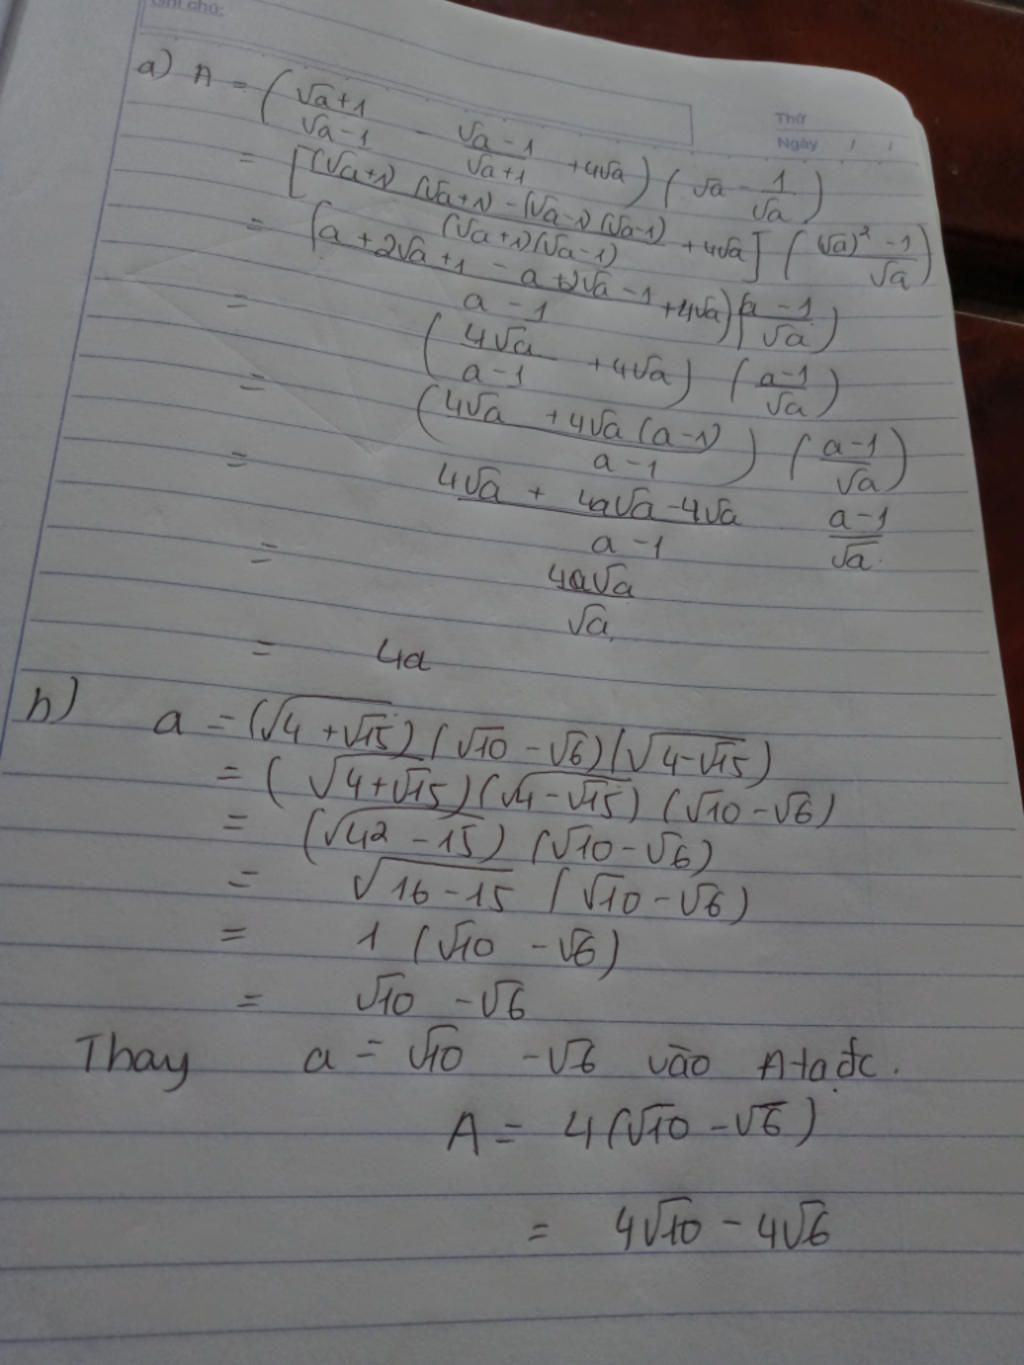 Ghi chú:
Thứ
Ngày / /
a) A = (√a+1/√a-1 - √a-1/√a+1 + 4√a) (√a - 1/√a)
= [(√a+1)(√a+1) - (√a-1)(√a-1)/(√a+1)(√a-1) + 4√a] ((√a)² - 1/√a)
= (a + 2√a + 1 - a + 2√a - 1/a - 1 + 4√a) (a - 1/√a)
= (4√a/a-1 + 4√a) (a-1/√a)
= (4√a + 4√a (a-1)/a-1) (a-1/√a)
= 4√a + 4a√a - 4√a/a-1 a-1/√a
= 4a√a/√a
= 4a
b) a = (√4+√15) (√10 - √6) (√4-√15)
= (√4+√15) (√4-√15) (√10 - √6)
= (√4² - 15) (√10 - √6)
= √16-15 (√10 - √6)
= 1 (√10 - √6)
= √10 - √6
Thay a = √10 - √6 vào A ta đc.
A = 4(√10 - √6)
= 4√10 - 4√6